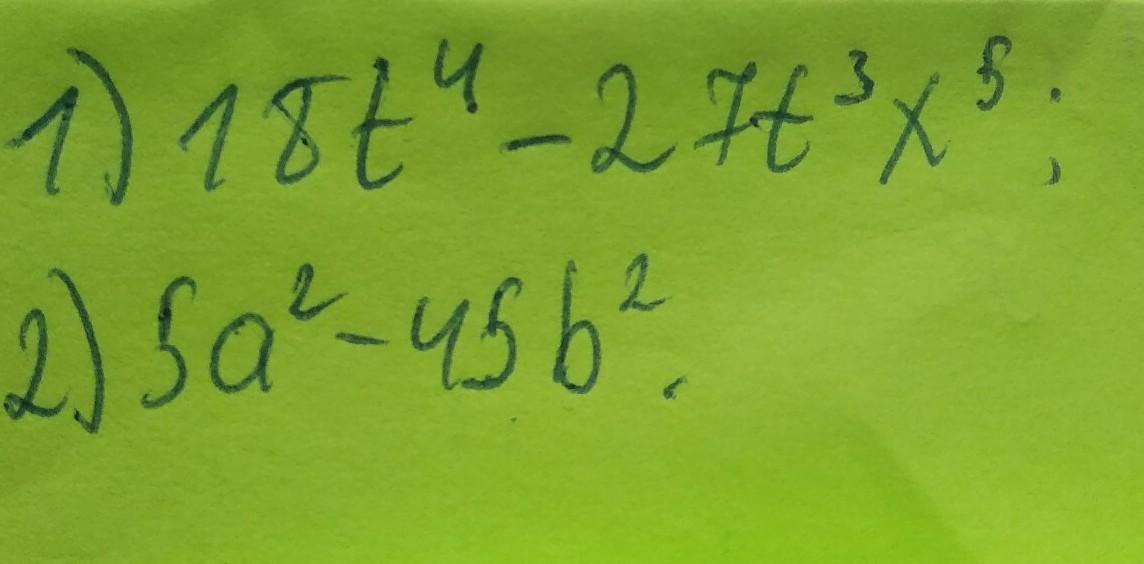 1) 18t⁴ - 27t³x⁵;
2) 5a² - 45b².